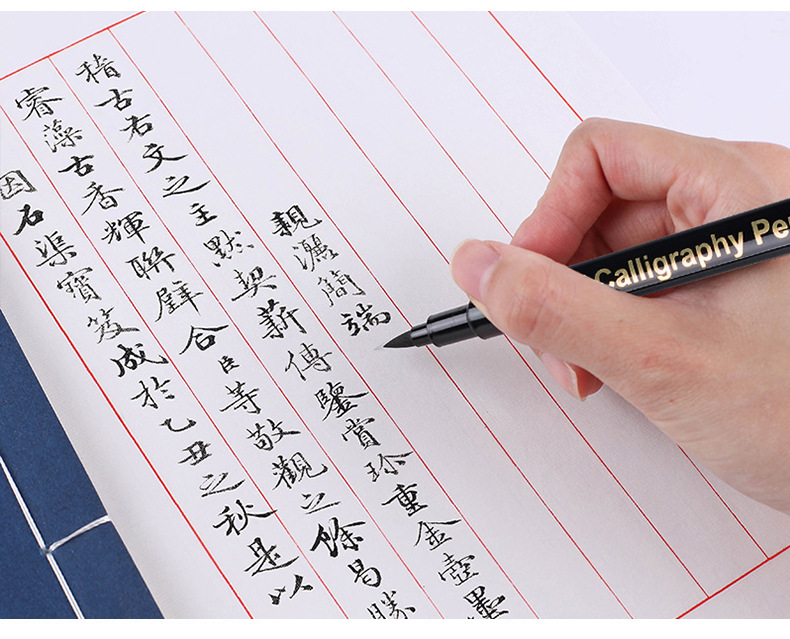 親灑簡端
稽古右文之主默契薪傳鑒賞珍重金壺墨
睿藻古香輝聯璧合臣等敬觀之餘曷勝
因石渠寶笈成於乙丑之秋是以
Calligraphy Pe